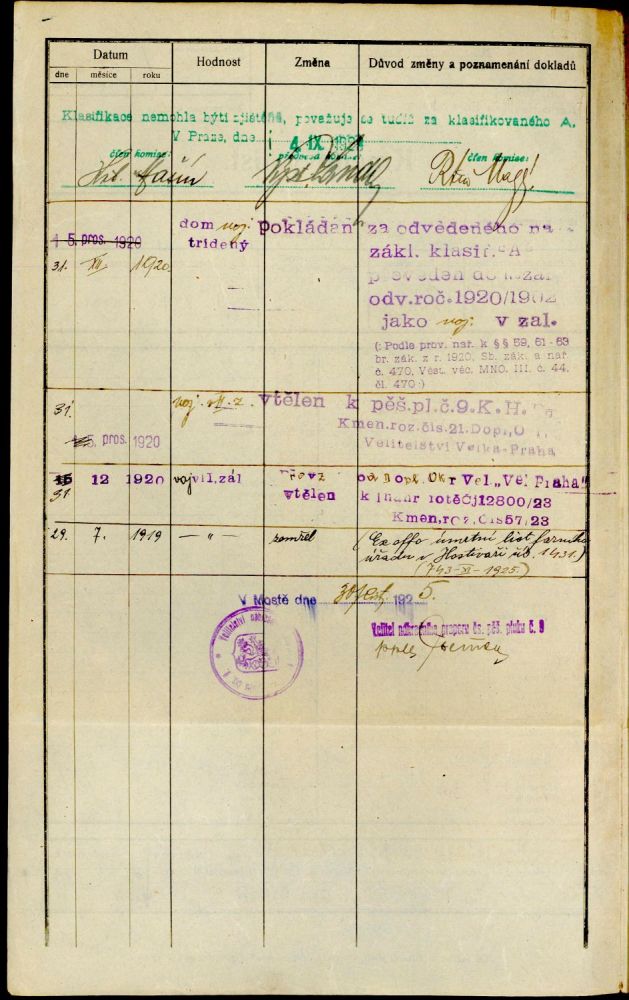 Datum Hodnost Změna Důvod změny a poznamenání dokladů
dne měsíce roku
Klasifikace nemohla býti zjištěna, považuje se tudíž za klasifikovaného A.
V Praze, dne 4. IX. 192
člen komise: předseda komise: člen komise:
dom voj. pokládán za odvedeného na
1 5. pros. 1920 trídený zákl. klasif. "A"
31. XII. 1920. převeden do
odv.roč.1920/1902
jako voj. v zal.
(: Podle prov. nař. k §§ 59, 61-63
br. zák. z r. 1920, Sb. zák. a nař.
č. 470, Věst. věc. MNO. III. č. 44,
čl. 470:)
31. voj. v II. z. vtělen k pěš.pl.č.9.K.H.
Kmen.roz.čís.21.Dopl.O
5. pros. 1920 Velitelství Velká-Praha
15 12 1920 vojvII.zál Okr Vel. „Vel Praha"
31. vtělen k 12800/23
Kmen.roz.čís57/23
29. 7. 1919 — " — zemřel (Ex offo úmrtní list farního
úřadu v Hostivaři čís. 1431.)
(743-XI-1925.)
V Mostě dne 30. 1925.
Velitel náhradního praporu čs. pěš. pluku č. 9